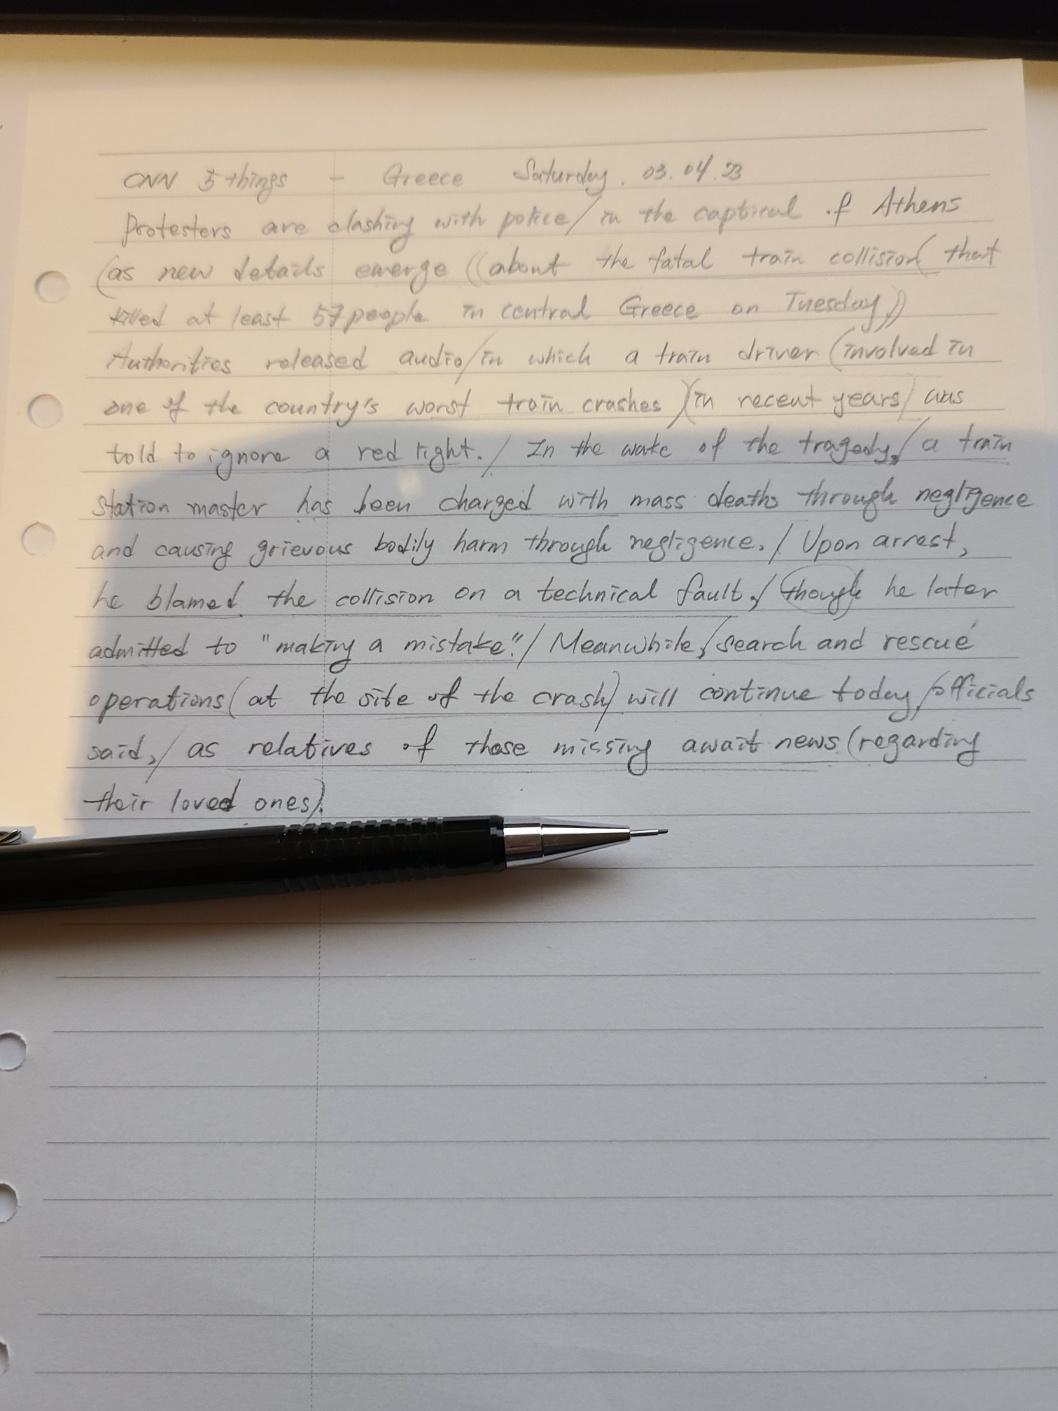 CNN 5 things - Greece Saturday. 03.04.23
Protesters are clashing with police/in the captical of Athens
(as new details emerge ((about the fatal train collision(that
killed at least 57people in central Greece on Tuesday))
Authorities released audio/in which a train driver(involved in
one of the country's worst train crashes)(in recent years) was
told to ignore a red light./ In the wake of the tragedy,/a train
station master has been charged with mass deaths through negligence
and causing grievous bodily harm through negligence./ Upon arrest,
he blamed the collision on a technical fault,/though he later
admitted to "making a mistake"./ Meanwhile,/search and rescue
operations(at the site of the crash) will continue today,/officials
said,/ as relatives of those missing await news(regarding
their loved ones).